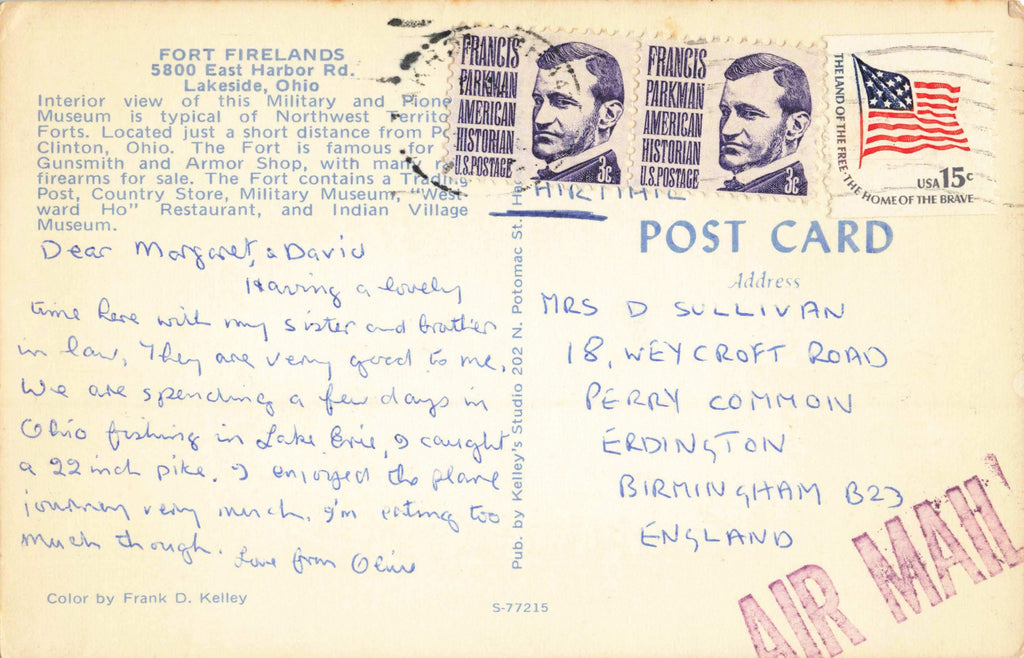 FORT FIRELANDS
5800 East Harbor Rd.
Lakeside, Ohio
Interior view of this Military and Pione
Museum is typical of Northwest Territo
Forts. Located just a short distance from Po
Clinton, Ohio. The Fort is famous for
Gunsmith and Armor Shop, with many r
firearms for sale. The Fort contains a Trading
Post, Country Store, Military Museum, "West
ward Ho" Restaurant, and Indian Village
Museum.
Dear Margaret, & David
Having a lovely
time here with my sister and brother
in law, They are very good to me.
We are spending a few days in
Ohio fishing in Lake Erie, I caught
a 22 inch pike. I enjoyed the plane
journey very much. I'm eating too
much though. Love from Olive
Color by Frank D. Kelley
Pub. by Kelley's Studio 202 N. Potomac St. Ha
S-77215
FRANCIS
PARKMAN
AMERICAN
HISTORIAN
U.S.POSTAGE
3c
FRANCIS
PARKMAN
AMERICAN
HISTORIAN
U.S.POSTAGE
3c
THE LAND OF THE FREE·THE HOME OF THE BRAVE
USA 15c
AIRMAIL
POST CARD
Address
MRS D SULLIVAN
18, WEYCROFT ROAD
PERRY COMMON
ERDINGTON
BIRMINGHAM B23
ENGLAND
AIR MAIL